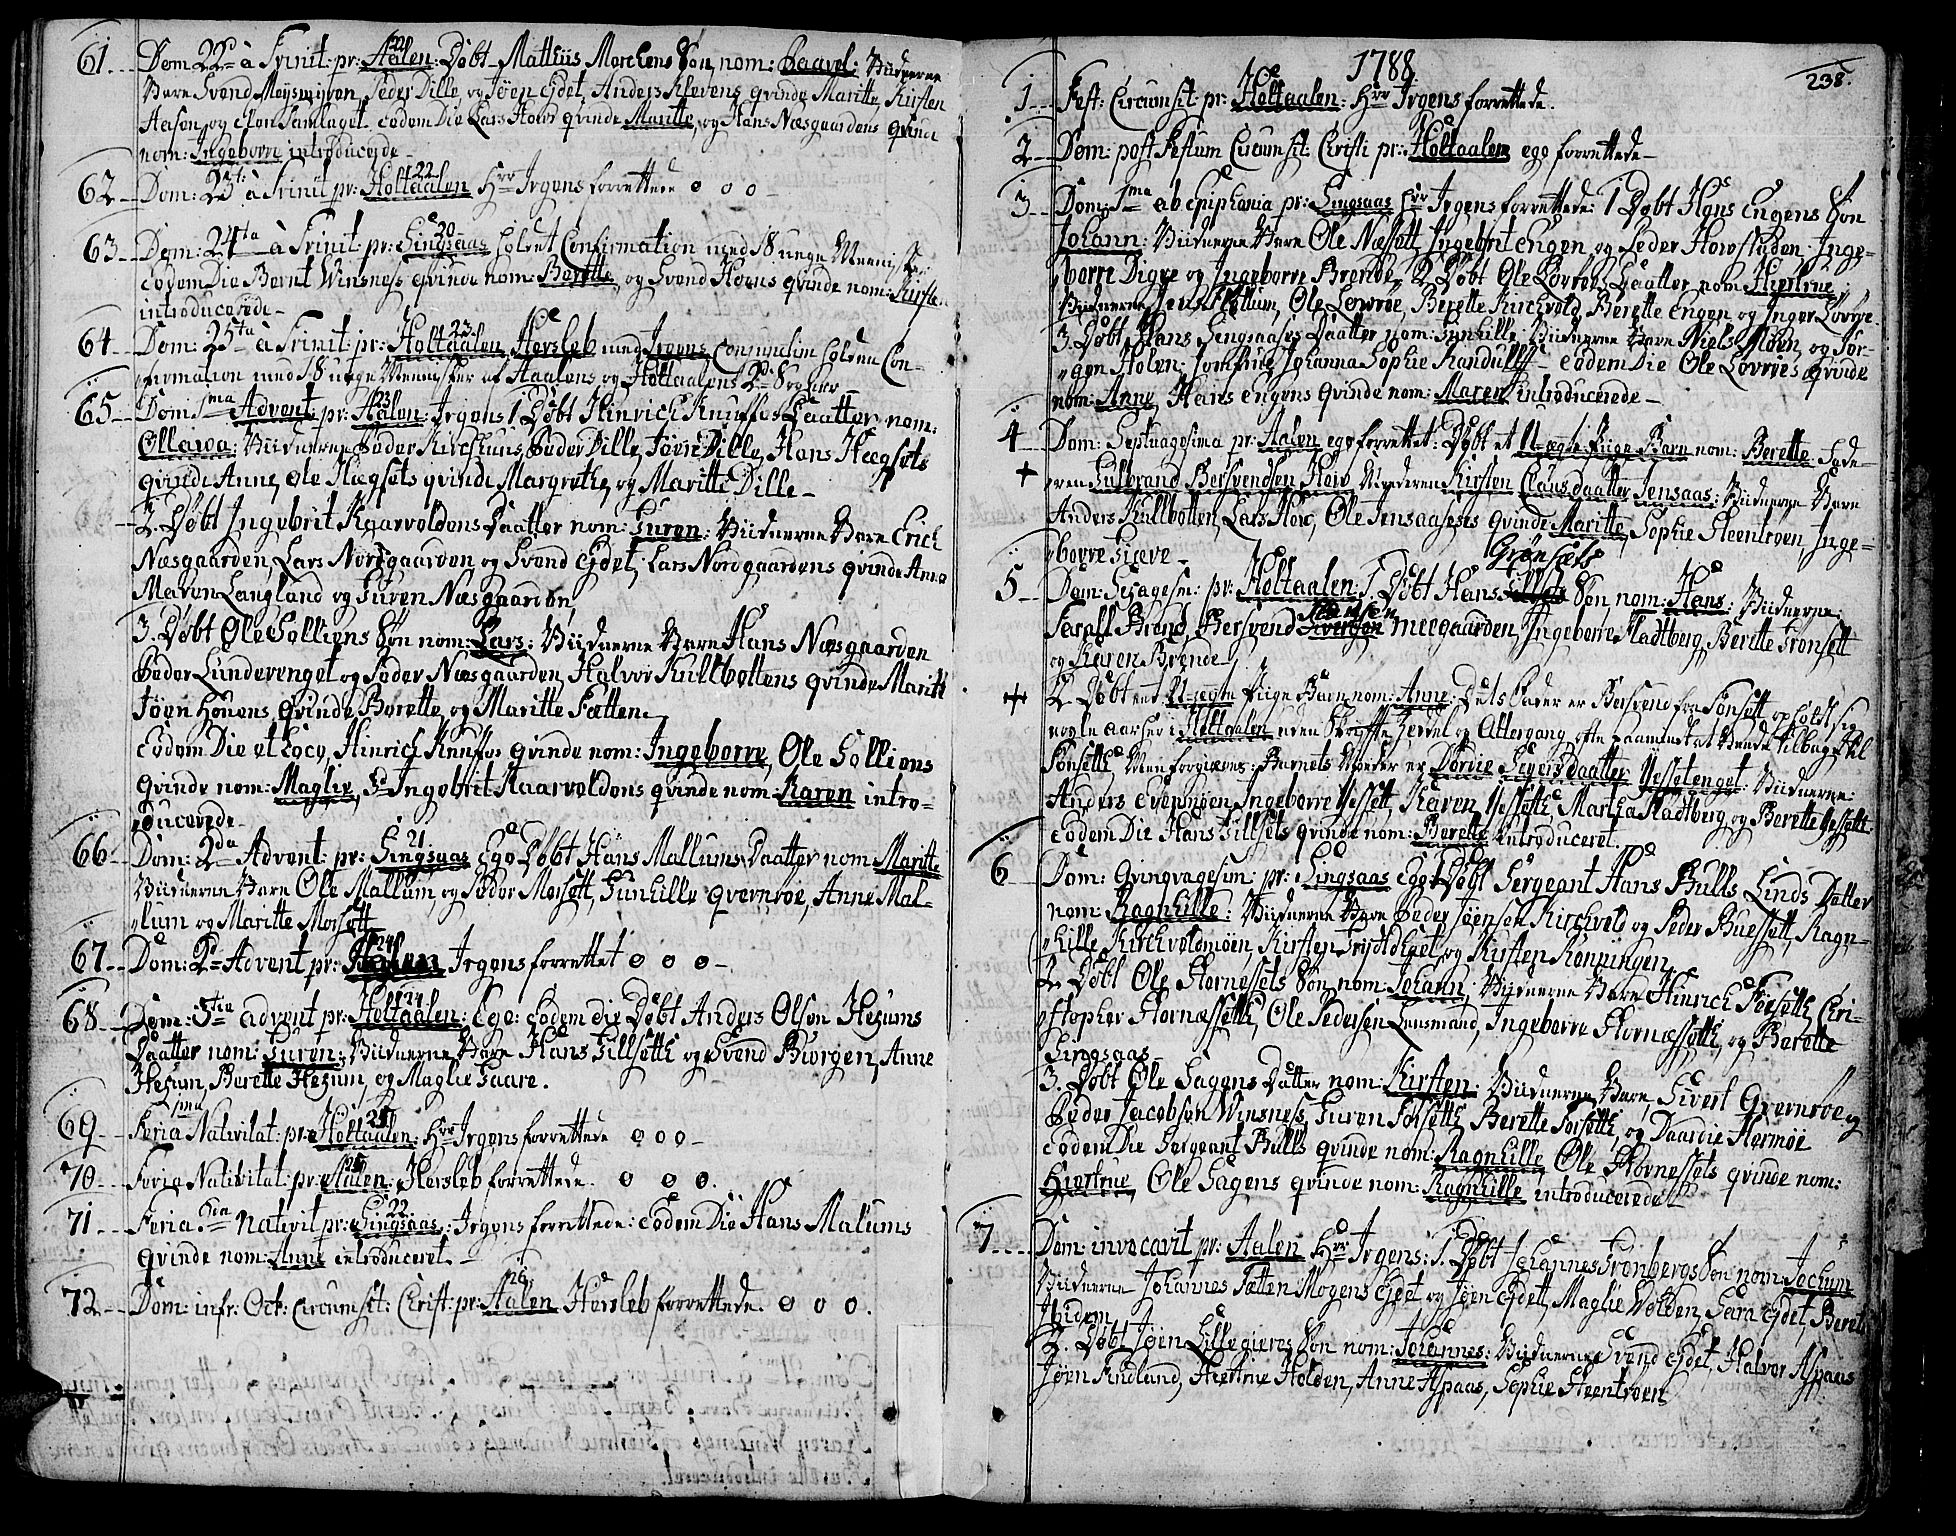 61. Dom 22de à Trinit: pr: Aalen: Døbt Matthiis Morchens Søn, nom: Paavel: Vidnerne
Vare Svend Møysmoen, Peder Dille og Jøen Eydet, Anders Klevens qvinde Maritte, Kirsten
Aasen, og Elen Samlaget. Eodem Die Lars Hovs qvinde Maritte, og Hans Næsgaardens qvinde
nom: Ingeborre introducerede
22
62. Dom: 23 à Trinit pr: Holtaalen Hrr Irgens forrettede o o o
22
63. Dom: 24ta à Trinit: pr: Singsaas holdet Confirmation med 18 unge Mennisker
20
Eodem Die Bernt Winsnes qvinde nom: Berette, og Svend Hovens qvinde nom: Kirsten
introducerede
64. Dom: 25ta à Trinit: pr: Holtaalen, Hersleb med Irgens Conjunctim holden Con-
23
firmation med 18 unge Mennisker af Aalens og Holtaalens 2de Sogner
65. Dom 1ma Advent: pr: Aalen: Irgens 1 Døbt Hinrich Knuffos Daatter nom:
23
Ollawa: Vidnerne Peder Kirchhuus, Peder Dille, Jøren Dille, Hans Hægsets
qvinde Anne, Ole Hægsets qvinde Margrethe, og Maritte Dille
2 Døbt Ingebrit Kaarvoldens Daatter nom: Guren: Vidnerne Vare Erich
Næsgaarden, Lars Nordgaarden og Svend Eydet, Lars Nordgaardens qvinde Anne
Maren Langland og Guren Næsgaarden
3. Døbt Ole Solliens Søn nom: Lars: Vidnerne Vare Hans Næsgaarden
Peder Lindevenget og Peder Næsgaarden, Halvor Kullbottens qvinde Maritte
Jøen Houens qvinde Berette, og Maritte Fætten
Eodem Die et Loco, Hinrich Knuffos qvinde nom: Ingeborre, Ole Solliens
qvinde nom: Maglie, Ingebrit Kaarvoldens qvinde nom: Karen intro-
ducerede
66. Dom: 2da Advent: pr: Singsaas Ego Døbt Hans Mallums Daatter nom Maritte
21
Vidnerne Vare Ole Mallum, og Peder Morsett, Gunhille qvernroe, Anne Mal-
lum og Maritte Morsett
67. Dom: 2de Advent pr: Aalen Irgens forrettet o o o
24
68. Dom: 3tia advent pr: Holtaalen: Ego: Eodem die Døbt Anders Olsøn Hexums
24
Daatter nom: Guren: Vidnerne Vare Hans Gillseth og Svend Burgen, Anne
Hexum, Berette Hexum, og Maglie Gaare.
69. Feria 1ma Nativitat: pr: Holtaalen: Hrr Irgens forrettede o o o
25
70. Feria Nativitat: pr: Aalen: Hersleb forrettede. o o o.
25
71. Feria 3tia Nativit pr: Singsaas: Irgens forrettede: Eodem Die Hans Malums
22
qvinde nom: Anne introduceret
72. Dom: infr: Oct: Circumsit: Christ: pr: Aalen Hersleb forrettede. o o o.
26
1788
238.
1. Fest: Circumsit: pr: Holtaalen: Hrr Irgens forrettede.
2. Dom: post Festum Circumsit: Christi pr: Holtaalen ego forrettede
3. Dom: 1ma ab Epiphania pr: Singsaas Hrr Irgens forrettede: 1 Døbt Hans Engens Søn
Johann: Vidnerne Vare Ole Næssett, Ingebrit Engen, og Peder Hovsluden, Inge-
borre Digre og Ingeborre Brende, 2 Døbt Ole Lovrøes Daatter nom Hiertrue:
Vidnerne Jens Mallum, Ole Lovrøe, Berette Kirchvold, Berette Engen og Inger Lovrøe.
3. Døbt Hans Singsaases Daatter nom: Gunhille: Vidnerne Vare Niels Moen, og Jør-
gen Holen, Jomfrue Johanna Sophie Randulff Eodem Die Ole Lovrøes qvinde
nom: Anne, Hans Engens qvinde nom: Maren introducerede
4. Dom: Septuagesima pr: Aalen ego forrettet: Døbt et U-ægte Piige Barn nom: Berette. Fade-
+ ren Gulbrand Bersvendsen Hov Moderen Kirsten Clausdaatter Jensaas: Vidnerne Vare
Anders Kullbotten, Lars Hov, Ole Jensaases qvinde Maritte, Sophie Steentrøen, Inge-
borre Sieve
Grønsets
5. Dom: Sexagesm: pr: Holtaalen. 1. Døbt Hans Søn nom: Hans: Vidnerne:
Faroll Brend, Bersvend Meegaarden, Ingeborre Kladtberg, Berette Fronsett
og Karen Brende
+ 2 Døbt et U-ægte Piige Barn nom: Anne: Dets Fader er Bersvend fra Tønsett opholdt sig
nogle aar her i Holtaalen
Tønseth, Men forgieves: Barnets Moder er Dorite Siversdaatter Ussetenget: Vidnerne:
Anders Evenmøen, Ingeborre Ussett, Karen Ussett, Martha Kladtberg, og Berette Ussett.
Eodem Die Hans Gillsets qvinde nom: Berette introduceret.
6. Dom: Qvinqvagesim: pr: Singsaas Ego 1 Døbt Sergeant Hans Bulls Linds Datter
nom: Ragnhille: Vidnerne Vare Peder Jøensøn Kirchvold og Peder Buessett, Ragn-
hille Kirchvoldmøen, Kirsten Trytdhoel, og Kirsten Rønningen,
2 Døbt Ole Stornessets Søn nom: Johann: Vidnerne Vare Hinrich Forseth, Chri-
stopher Stornæsseth, Ole Pedersen Lensmand, Ingeborre Stornæsseth, og Berette
Singsaas
3. Døbt Ole Sagens Datter nom: Kirsten: Vidnerne Vare, Sivert Qvernroe og
Peder Jacobsøn Winsness, Guren Forseth, Berette Forseth, og Daardie Hermoe
Eodem Die Sergeant Bulls qvinde nom: Ragnhille, Ole Stornessets qvinde nom:
Hiertrue, Ole Sagens qvinde nom: Ragnhille introducerede
7. Dom: invocavit pr: Aalen Hrr Irgens: 1. Døbt Johannes Tronbergs Søn nom: Jochum
Vidnerne Johannes Fætten Mogens Eydet og Jøen Eydett, Maglie Volden, Sara Eydet, Berett
Ibidem
2. Døbt Jøen Lillegierets Søn nom: Johannes: Vidnerne Svend Eydet, Halvor Aspaas
Jøen Findland, Hiertrue Holden, Anne Aspaas, Sophie Steentroen